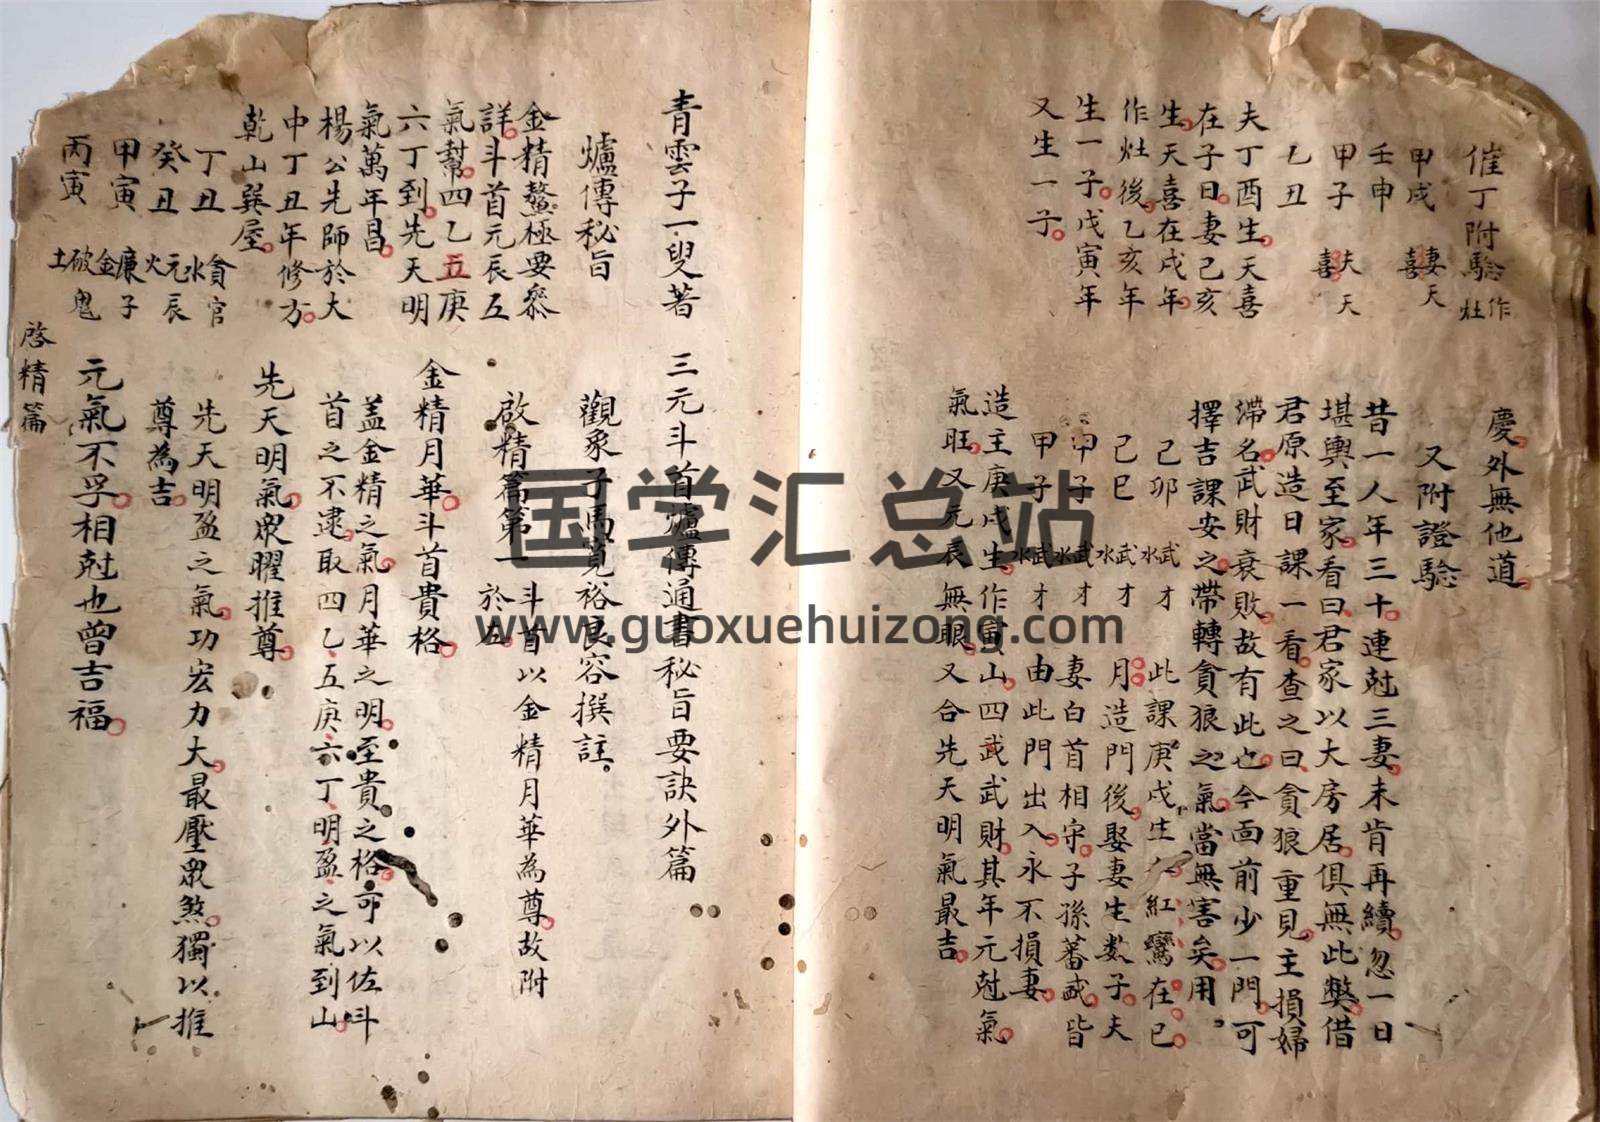 催丁附驗 作灶
甲戌 妻天喜
壬申
甲子 夫天喜
乙丑
夫丁酉生天喜
在子日妻己亥
生天喜在戌年
作灶後乙亥年
生一子戊寅年
又生一子
慶外無他道
又附證驗
昔一人年三十連尅三妻未肯再續忽一日
堪輿至家看曰君家以大房居俱無此獘借
君原造日課一看查之曰貪狼重見主損婦
滯名武財衰敗故有此也今面前少一門可
擇吉課安之帶轉貪狼之氣當無害矣用
己卯 武水才 此課庚戌生人紅鸞在巳
己巳 武水才 月造門後娶妻生数子夫
甲子 武水才 妻白首相守子孫蕃武皆
甲子 武水才 由此門出入永不損妻
造主庚戌生作寅山四武武財其年元尅氣
氣旺又元辰無眼又合先天明氣最吉
青雲子一叟著 三元斗首爐傳通書秘旨要訣外篇
爐傳秘旨
金精鰲極要叅
詳斗首元辰互
氣幫四乙五庚
六丁到先天明
氣萬年昌
楊公先師於大
中丁丑年修方
乾山巽屋
丁丑 貪水官
癸丑 元火辰
甲寅 廉金子
丙寅 破土鬼
觀象子馮寬裕良容撰註
啟精篇第一 斗首以金精月華為尊故附於左
金精月華斗首貴格
盖金精之氣月華之明至貴之格可以佐斗
首之不逮取四乙五庚六丁明盈之氣到山
先天明氣眾曜推尊
先天明盈之氣功宏力大最壓眾煞獨以推
尊為吉
元氣不孚相尅也曾吉福
啓精篇
国学汇总站
www.guoxuehuizong.com